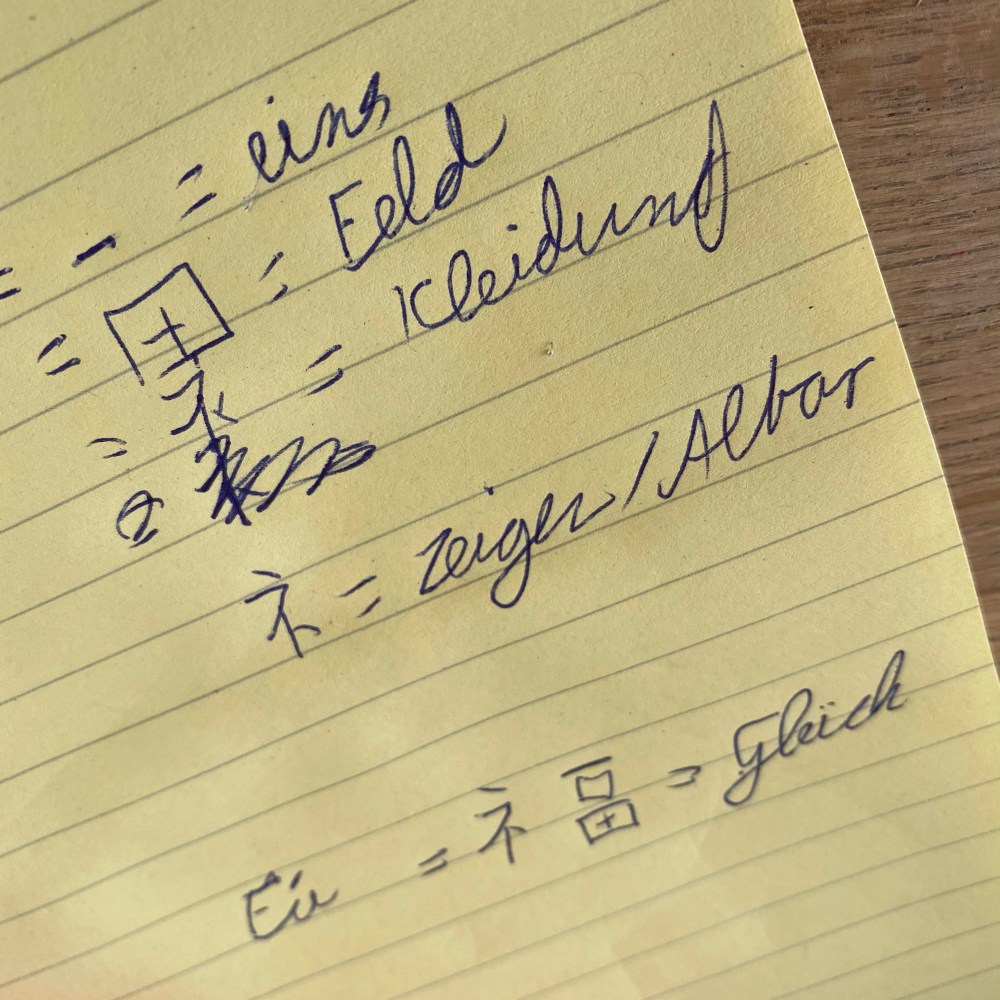 = 一 = eins
= 田 = Feld
= 衤 = Kleidung
=
礻 = zeigen / Altar
= 礻畐 = Glück